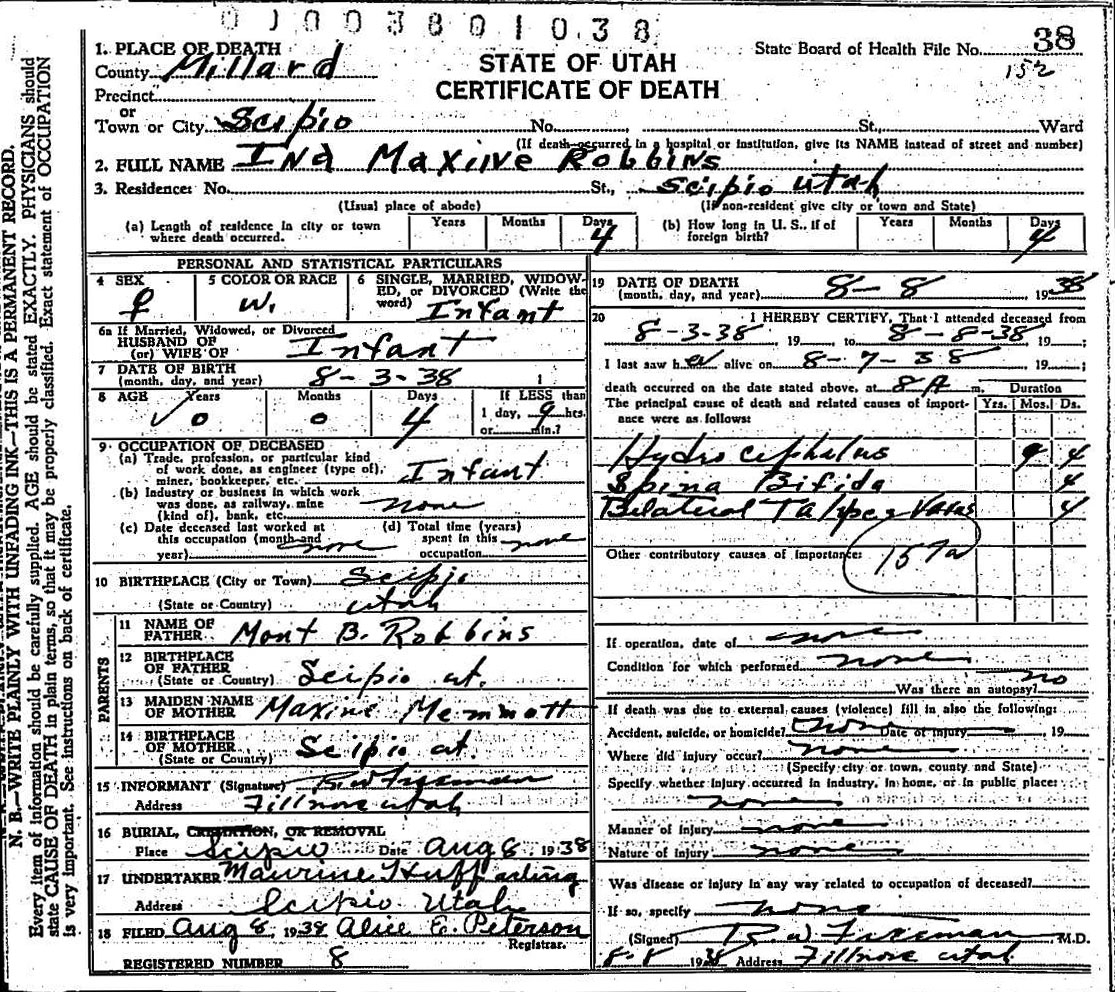 01003801038
State Board of Health File No. 38
152
STATE OF UTAH
CERTIFICATE OF DEATH
1. PLACE OF DEATH
County Millard
Precinct
or
Town or City Scipio No. St., Ward
(If death occurred in a hospital or institution, give its NAME instead of street and number)
2. FULL NAME Ina Maxine Robbins
3. Residence: No. St., Scipio Utah
(Usual place of abode) (If non-resident give city or town and State)
(a) Length of residence in city or town where death occurred. Years Months Days 4
(b) How long in U. S., if of foreign birth? Years Months Days 4
PERSONAL AND STATISTICAL PARTICULARS
4 SEX f
5 COLOR OR RACE w.
6 SINGLE, MARRIED, WIDOWED, or DIVORCED (Write the word) Infant
6a If Married, Widowed, or Divorced
HUSBAND OF
(or) WIFE OF Infant
7 DATE OF BIRTH
(month, day, and year) 8-3-38 1
8 AGE Years 0 Months 0 Days 4 If LESS than 1 day, 9 hrs. or min.?
9 OCCUPATION OF DECEASED
(a) Trade, profession, or particular kind
of work done, as engineer (type of),
miner, bookkeeper, etc. Infant
(b) Industry or business in which work
was done, as railway, mine
(kind of), bank, etc. none
(c) Date deceased last worked at this occupation (month and year) none
(d) Total time (years) spent in this occupation none
10 BIRTHPLACE (City or Town) Scipio
(State or Country) Utah
PARENTS
11 NAME OF FATHER Mont B. Robbins
12 BIRTHPLACE OF FATHER
(State or Country) Scipio ut.
13 MAIDEN NAME OF MOTHER Maxine Memmott
14 BIRTHPLACE OF MOTHER
(State or Country) Scipio ut.
15 INFORMANT (Signature) R. W Freeman
Address Fillmore Utah
16 BURIAL, CREMATION, OR REMOVAL
Place Scipio Date Aug 8 1938
17 UNDERTAKER Maurine Huff acting
Address Scipio Utah
18 FILED Aug 8, 1938 Alice E. Peterson
Registrar.
REGISTERED NUMBER 8
19 DATE OF DEATH
(month, day, and year) 8-8 1938
20 I HEREBY CERTIFY, That I attended deceased from
8-3-38, 19 , to 8-8-38, 19 ;
I last saw her alive on 8-7-38, 19 ;
death occurred on the date stated above, at 8 A m. Duration
The principal cause of death and related causes of importance were as follows: Yrs. Mos. Ds.
Hydrocephalus 9 4
Spina Bifida 4
Bilateral Talipes Varus 4
Other contributory causes of importance: 157a
If operation, date of none
Condition for which performed none
Was there an autopsy? no
If death was due to external causes (violence) fill in also the following:
Accident, suicide, or homicide? none Date of injury , 19
Where did injury occur? none
(Specify city or town, county and State)
Specify whether injury occurred in industry, in home, or in public place:
none
Manner of injury none
Nature of injury none
Was disease or injury in any way related to occupation of deceased?
If so, specify none
(Signed) R. W Freeman, M.D.
8-8 1938 Address Fillmore Utah
N. B.—WRITE PLAINLY WITH UNFADING INK—THIS IS A PERMANENT RECORD.
Every item of information should be carefully supplied. AGE should be stated EXACTLY. PHYSICIANS should
state CAUSE OF DEATH in plain terms, so that it may be properly classified. Exact statement of OCCUPATION
is very important. See instructions on back of certificate.